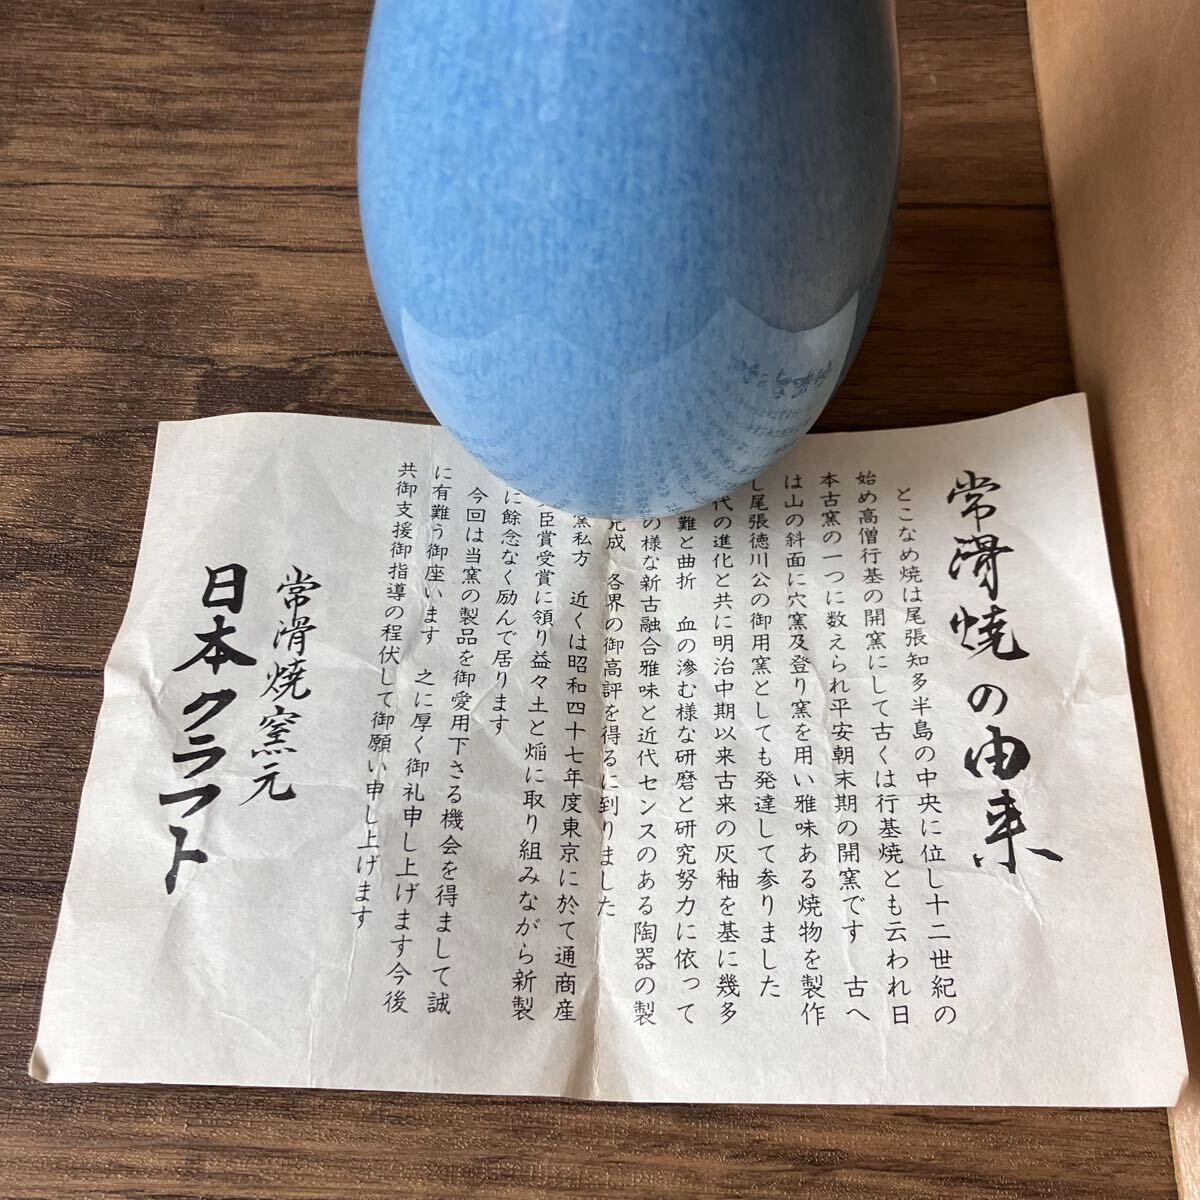 常滑焼の由来
とこなめ焼は尾張知多半島の中央に位し十二世紀の
始め高僧行基の開窯にして古くは行基焼とも云われ日
本古窯の一つに数えられ平安朝末期の開窯です　古へ
は山の斜面に穴窯及登り窯を用い雅味ある焼物を製作
し尾張徳川公の御用窯としても発達して参りました
代の進化と共に明治中期以来古来の灰釉を基に幾多
難と曲折　血の滲む様な研磨と研究努力に依って
の様な新古融合雅味と近代センスのある陶器の製
完成　各界の御高評を得るに到りました
窯私方　近くは昭和四十七年度東京に於て通商産
臣賞受賞に領り益々土と焔に取り組みながら新製
に餘念なく励んで居ります
今回は当窯の製品を御愛用下さる機会を得まして誠
に有難う御座います　之に厚く御礼申し上げます今後
共御支援御指導の程伏して御願い申し上げます
常滑焼窯元
日本クラフト